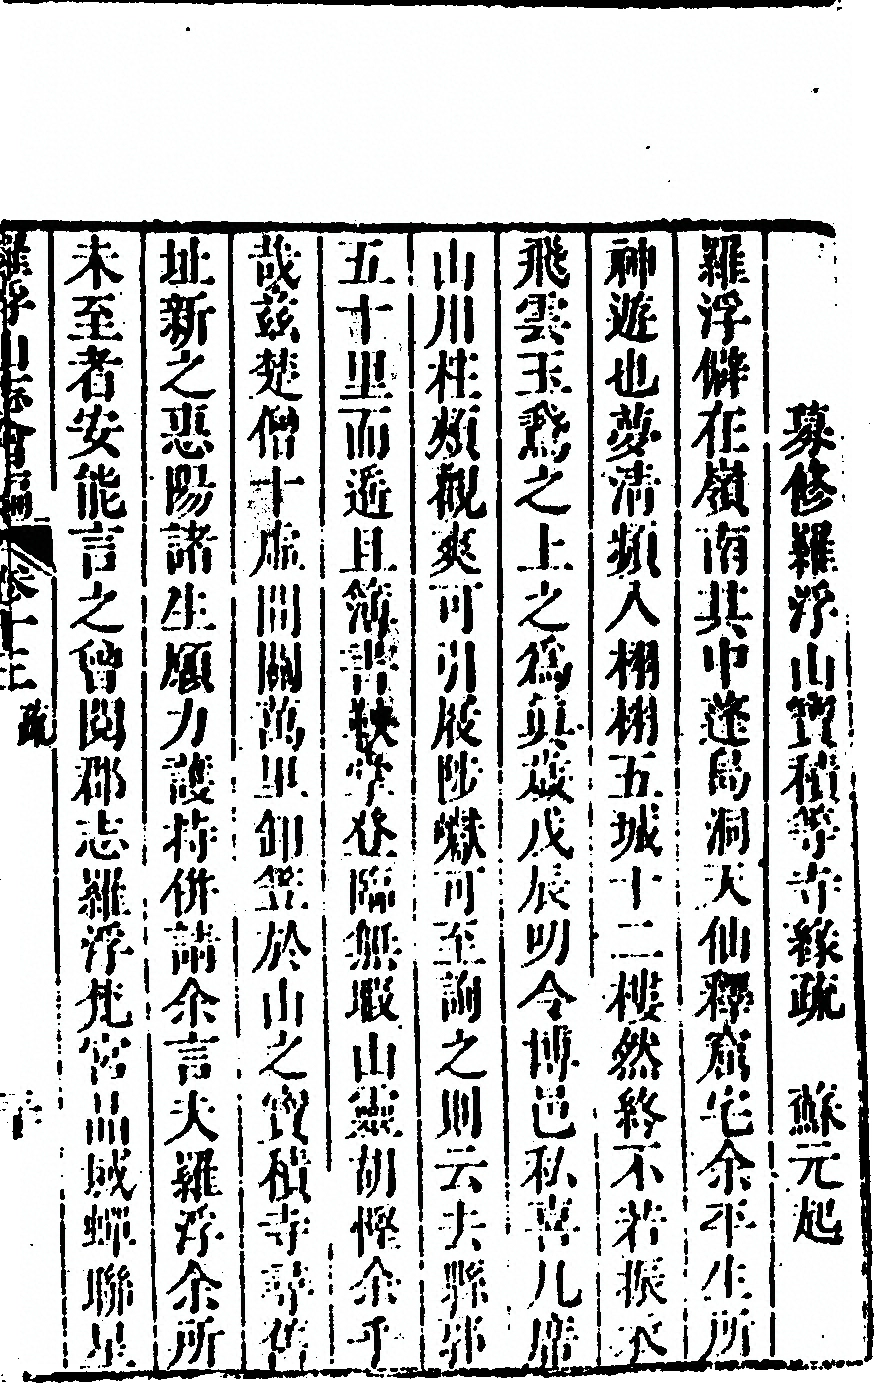 募修羅浮山寶積等寺緣疏　蘇元起
羅浮僻在嶺南其中蓬島洞天仙釋窟宅余平生所
神遊也夢清頻入栩栩五城十二樓然終不若振衣
飛雲玉鵞之上之為眞歳戊辰叨令博邑私喜几席
山川柱頰觀爽可引屐陟嶽可至詢之則云去縣郭
五十里而遥且簿書鞅掌登臨無暇山靈胡慳余乎
哉兹楚僧十虛間關萬里卸笠於山之寶積寺尋舊
址新之惠陽諸生願力護持併請余言夫羅浮余所
未至者安能言之曾閱郡志羅浮梵宮品域蟬聯星
羅浮山志會編　卷十三　疏